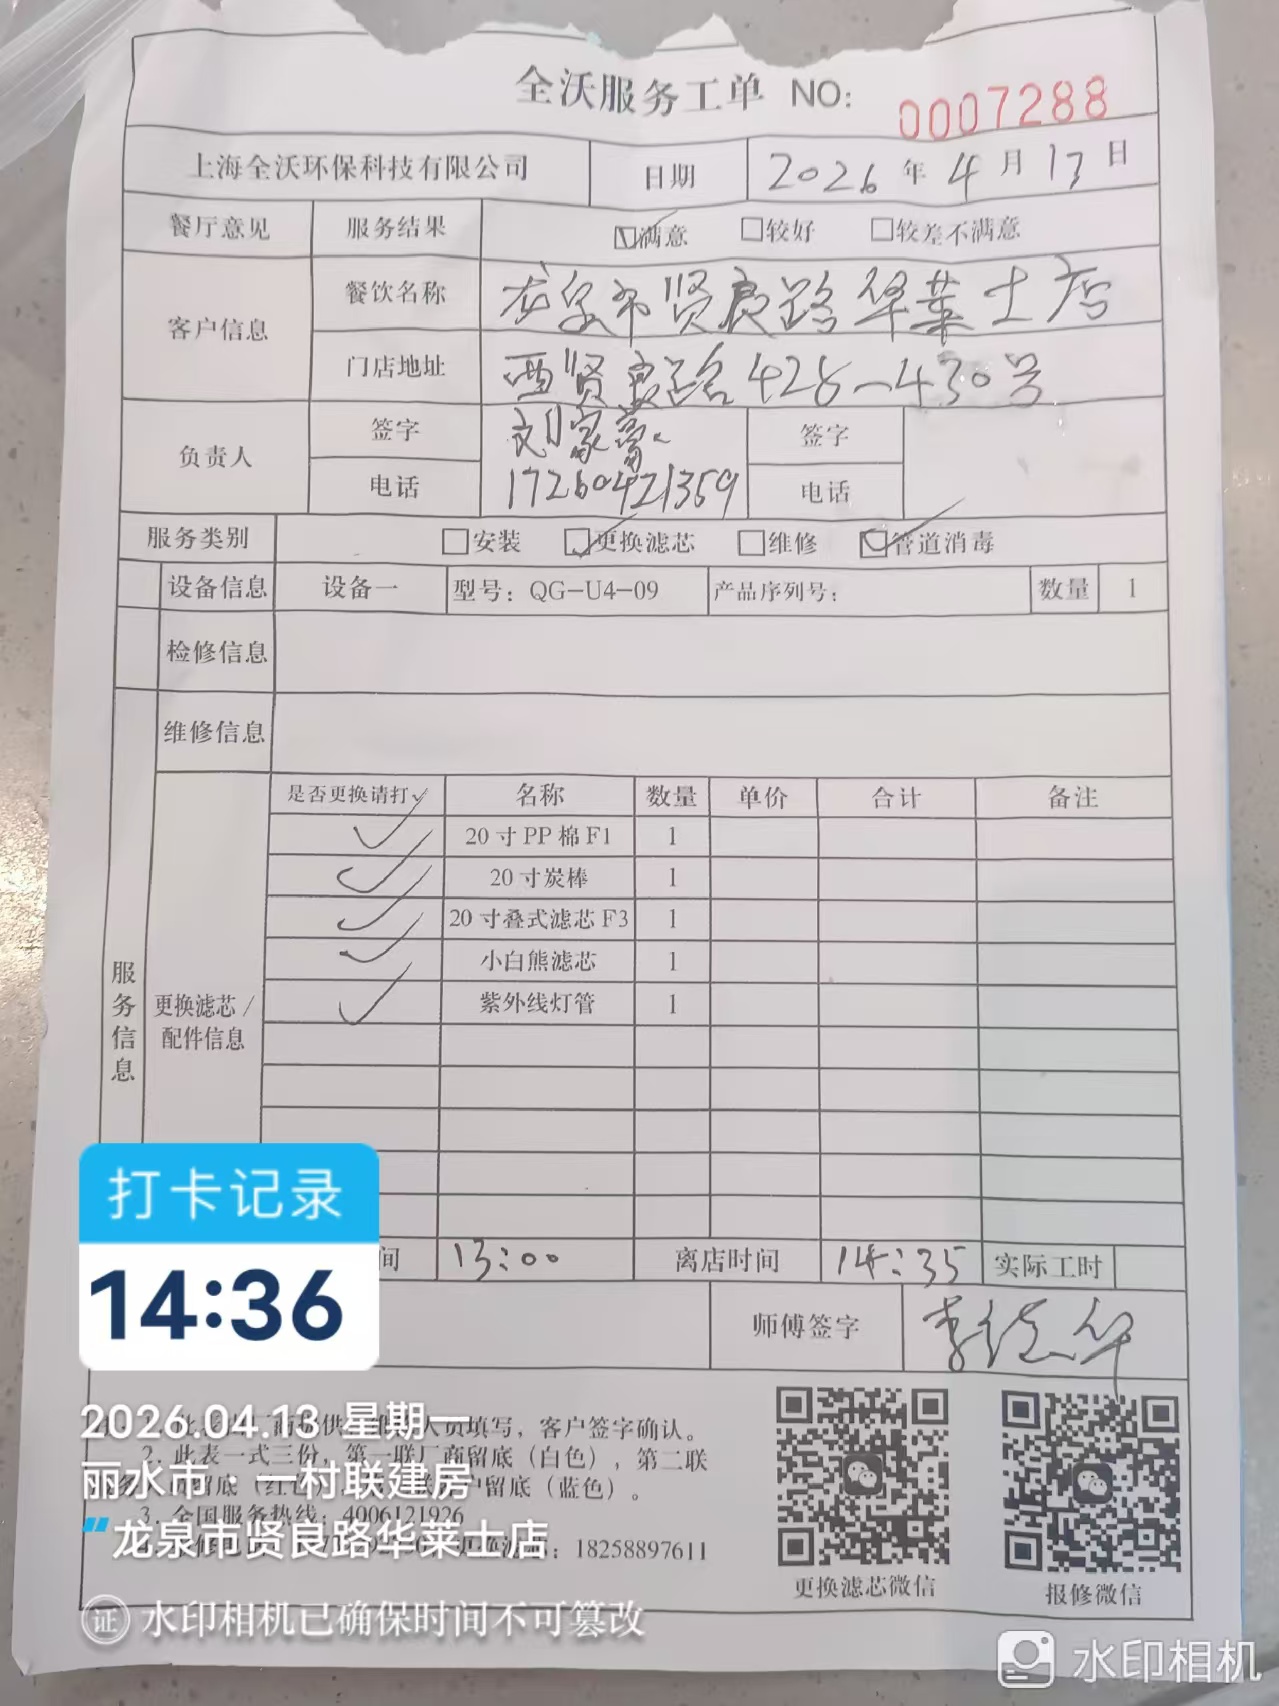 全沃服务工单 NO: 0007288
上海全沃环保科技有限公司 日期 2026年4月13日
餐厅意见 服务结果 ☑满意 □较好 □较差不满意
客户信息 餐饮名称 龙泉市贤良路华莱士店
门店地址 西贤良路428-430号
负责人 签字 刘家豪 签字
电话 17260421359 电话
服务类别 □安装 ☑更换滤芯 □维修 ☑管道消毒
设备信息 设备一 型号: QG-U4-09 产品序列号: 数量 1
检修信息
维修信息
服务信息
更换滤芯/配件信息
是否更换请打✓ 名称 数量 单价 合计 备注
✓ 20寸PP棉F1 1
✓ 20寸炭棒 1
✓ 20寸叠式滤芯F3 1
✓ 小白熊滤芯 1
✓ 紫外线灯管 1
间 13:00 离店时间 14:35 实际工时
师傅签字 李德华
打卡记录
14:36
填写，客户签字确认。
2. 此表一式三份，第一联厂商留底（白色），第二联
留底（红色） 户留底（蓝色）。
3. 全国服务热线: 4006121926
: 18258897611
更换滤芯微信 报修微信
2026.04.13 星期一
丽水市·一村联建房
龙泉市贤良路华莱士店
证 水印相机已确保时间不可篡改
水印相机